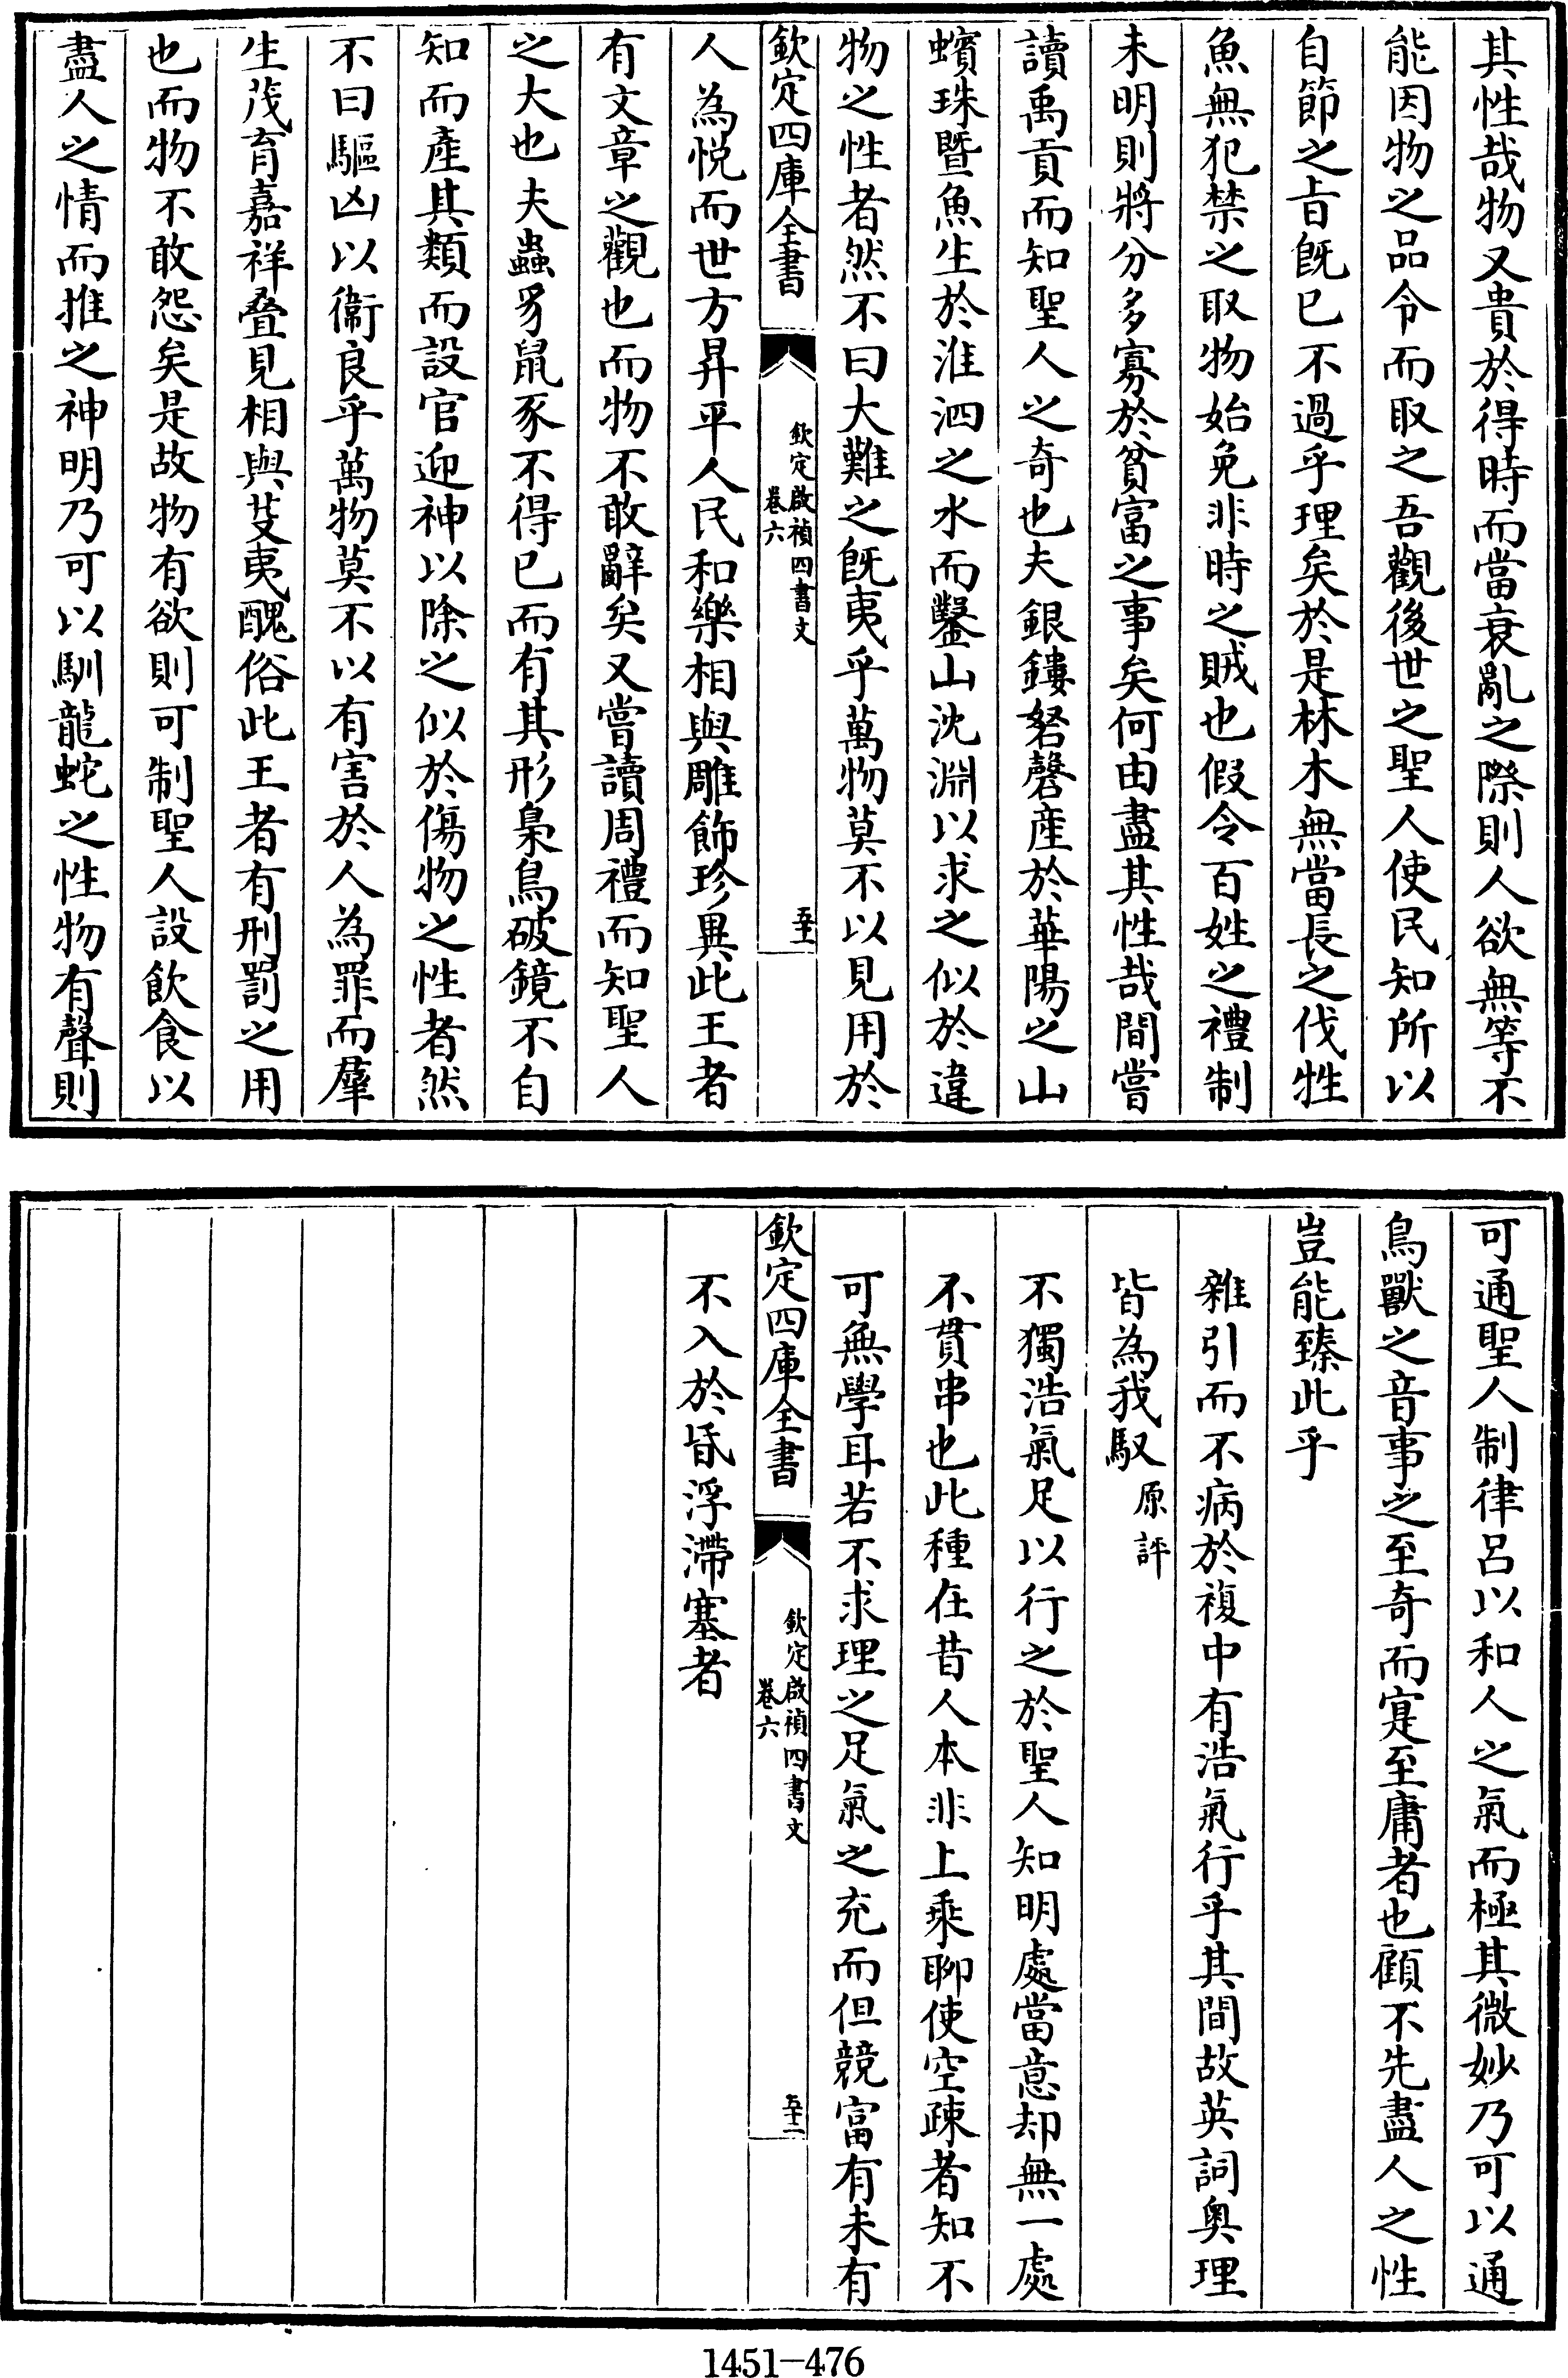 其性哉物又貴於得時而當衰亂之際則人欲無等不
能因物之品令而取之吾觀後世之聖人使民知所以
自節之旨既已不過乎理矣於是林木無當長之伐牲
魚無犯禁之取物始免非時之賊也假令百姓之禮制
未明則將分多寡於貧富之事矣何由盡其性哉間嘗
讀禹貢而知聖人之奇也夫銀鏤砮磬産於華陽之山
蠙珠暨魚生於淮泗之水而鑿山沈淵以求之似於違
物之性者然不曰大難之既夷乎萬物莫不以見用於
欽定四庫全書
欽定啟禎四書文
卷六
五十一
人為悅而世方昇平人民和樂相與雕飾珍異此王者
有文章之觀也而物不敢辭矣又嘗讀周禮而知聖人
之大也夫蟲豸鼠豕不得已而有其形梟鳥破鏡不自
知而產其類而設官迎神以除之似於傷物之性者然
不曰驅凶以衞良乎萬物莫不以有害於人為罪而羣
生茂育嘉祥疊見相與芟夷醜俗此王者有刑罰之用
也而物不敢怨矣是故物有欲則可制聖人設飲食以
盡人之情而推之神明乃可以馴龍蛇之性物有聲則
可通聖人制律呂以和人之氣而極其微妙乃可以通
鳥獸之音事之至奇而寔至庸者也顧不先盡人之性
豈能臻此乎
雜引而不病於複中有浩氣行乎其間故英詞奧理
皆為我馭原評
不獨浩氣足以行之於聖人知明處當意却無一處
不貫串也此種在昔人本非上乘聊使空疎者知不
可無學耳若不求理之足氣之充而但競富有未有
欽定四庫全書
欽定啟禎四書文
卷六
五十二
不入於昏浮滯塞者
1451-476